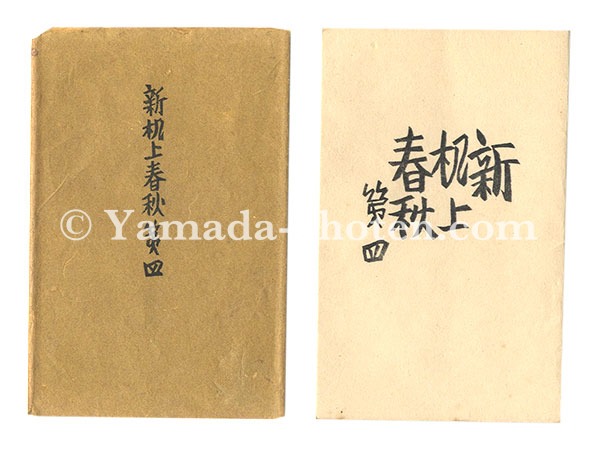 新机上春秋第四
新
机上
春秋
第四
© Yamada-Shoten.com